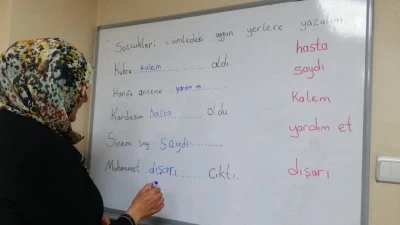 Sözcükleri cümledeki uygun yerlere yazalım.
Kübra kalem aldı
Hanife annene yardım et
Kardeşim hasta oldu
Sinem sayı saydı
Muhammet dışarı çıktı.
hasta
saydı
Kalem
yardım et
dışarı